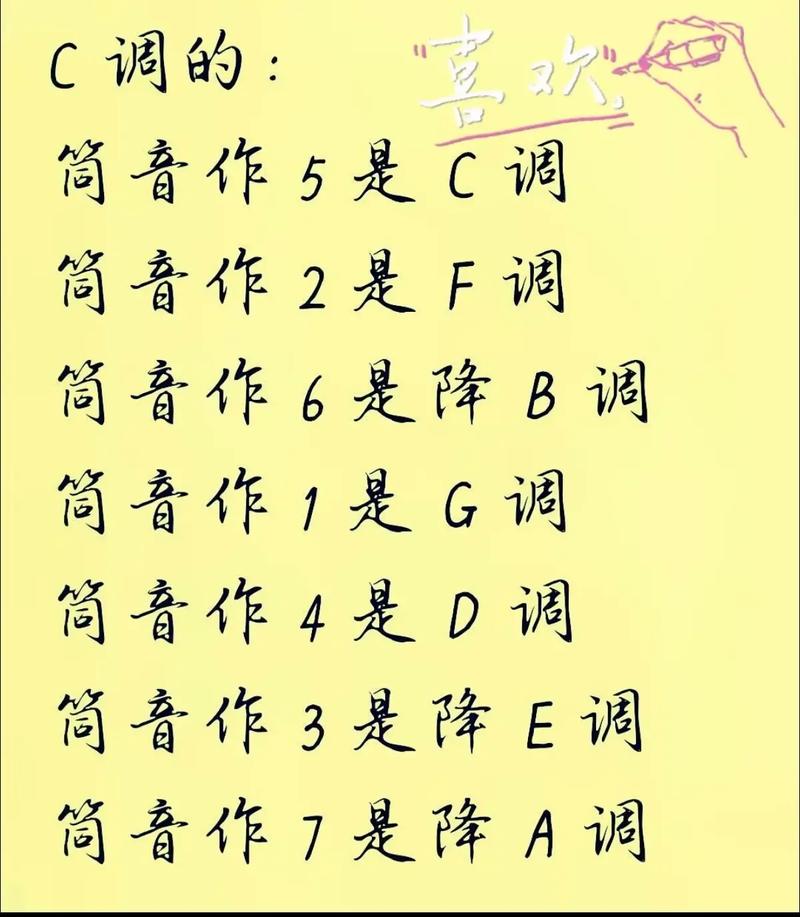 C 调的：
"喜欢"。
筒音作 5 是 C 调
筒音作 2 是 F 调
筒音作 6 是降 B 调
筒音作 1 是 G 调
筒音作 4 是 D 调
筒音作 3 是降 E 调
筒音作 7 是降 A 调